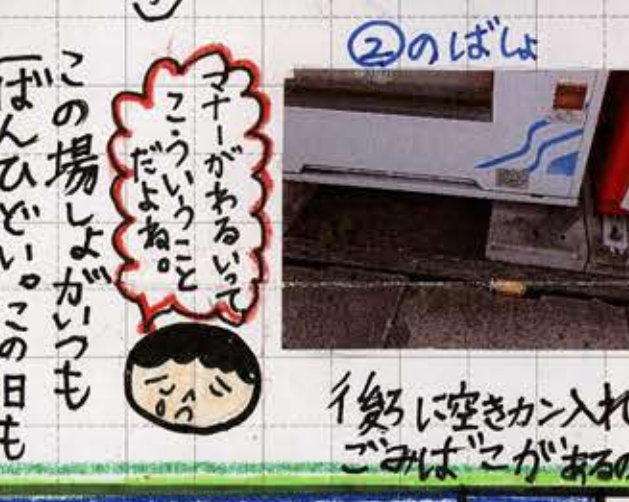 ②のばしょ
マナーがわるいって
こ.ういうこと
だよね。
この場しょがいつも
ばんひどい。この日も
後ろに空きカン入れ
ごみばこがあるの